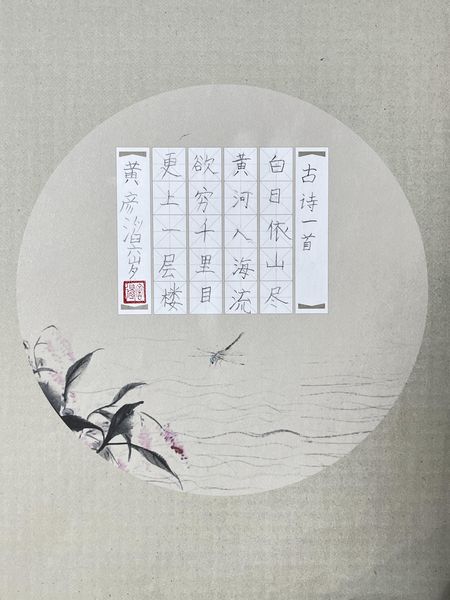 古诗一首
白日依山尽
黄河入海流
欲穷千里目
更上一层楼
黄彦 六岁